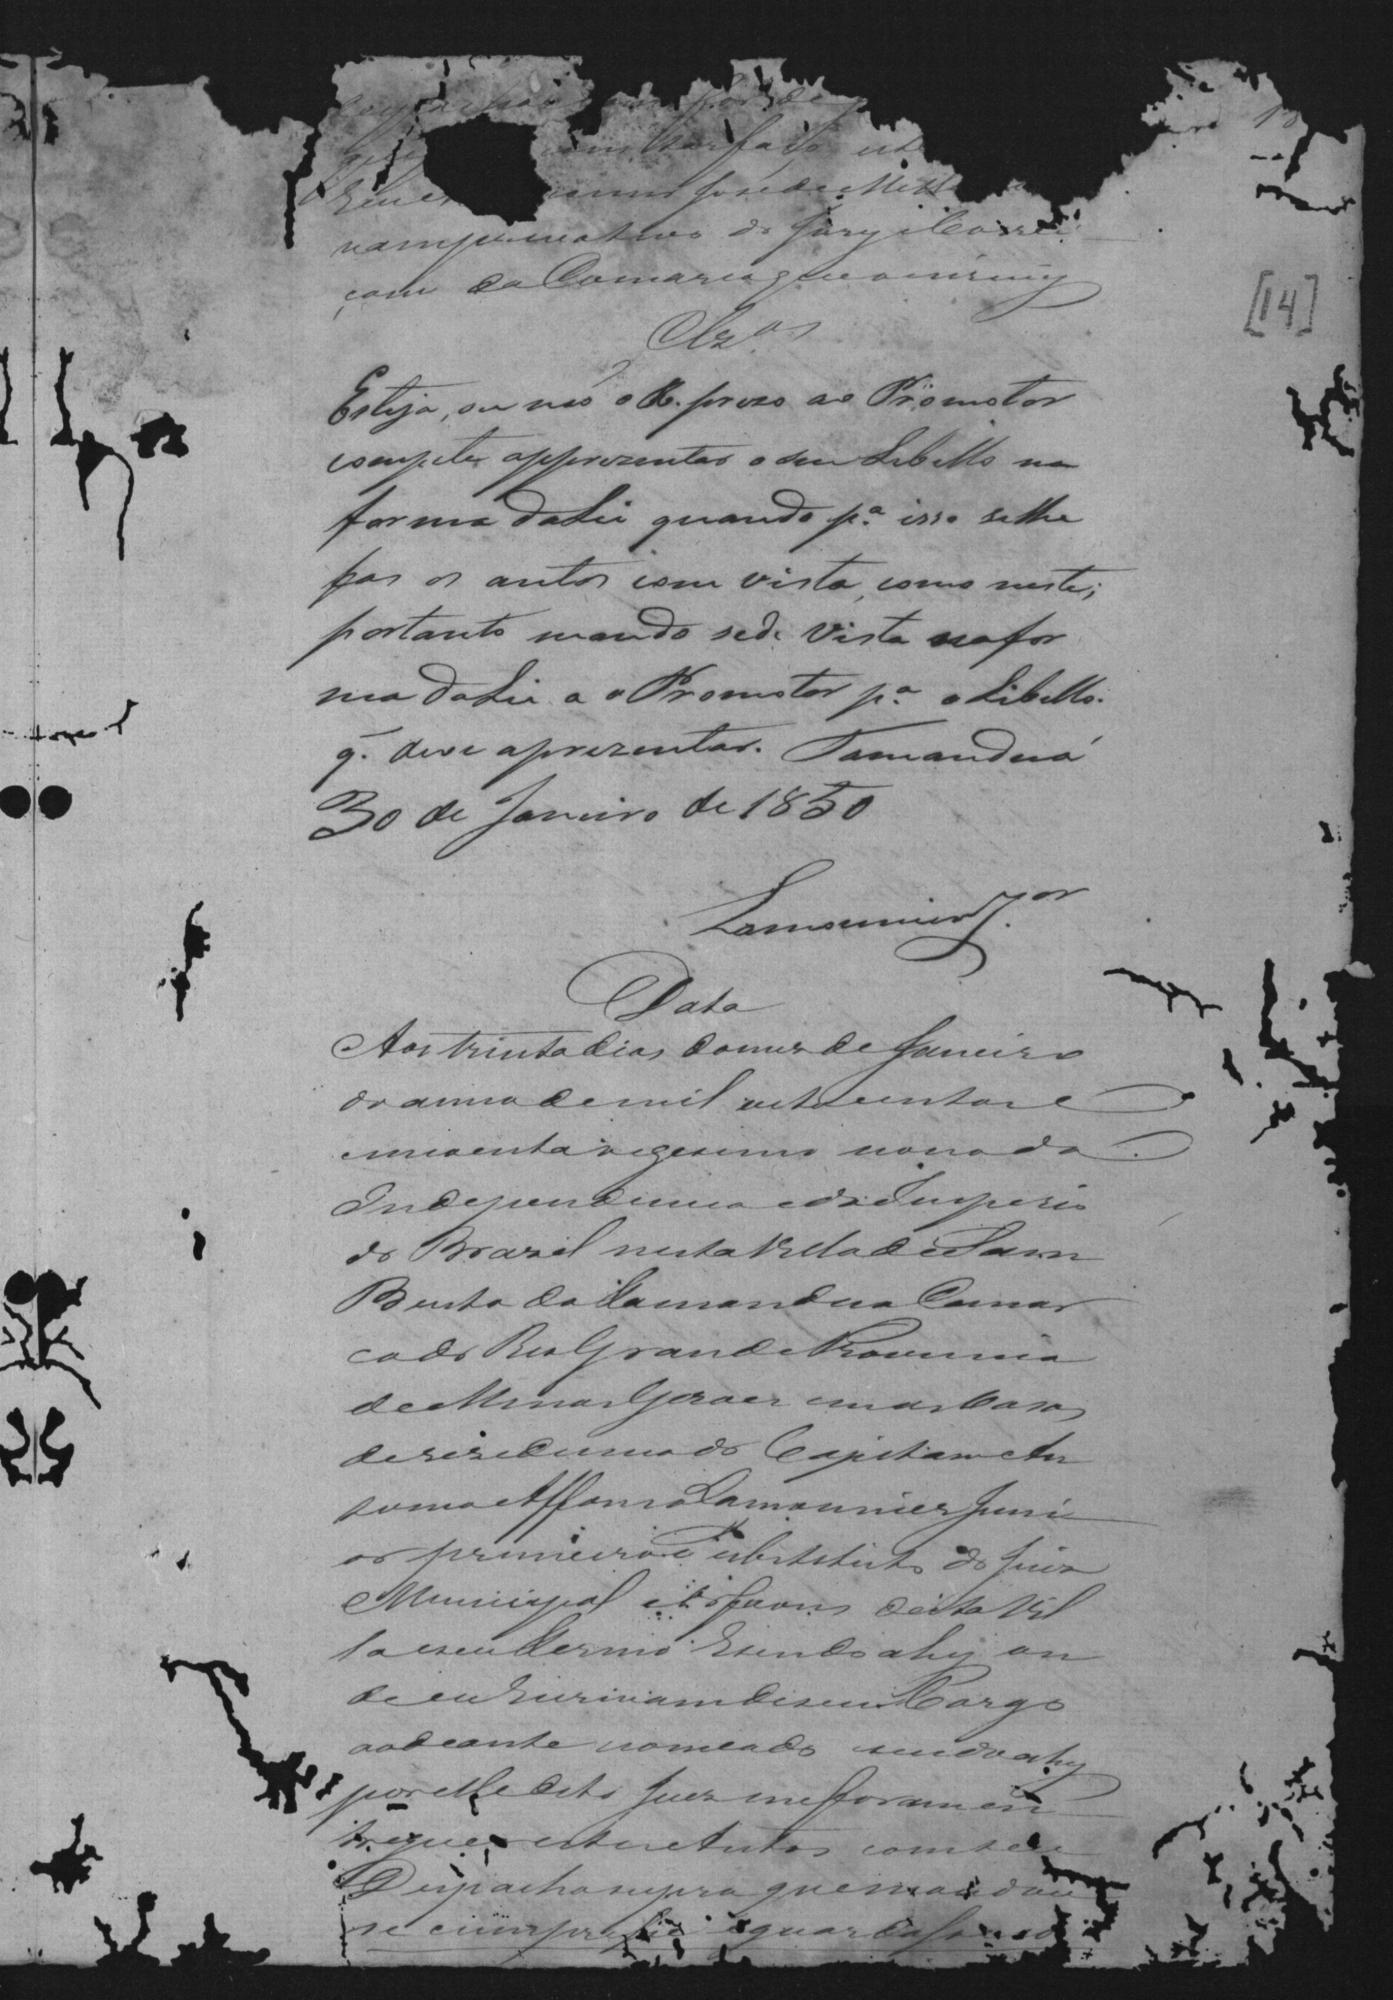 18
[14]
vam privativo do Jury e Correi
çam da Comarca que o escrevy
Clzos
Esteja, ou não o R. prezo ao Promotor
compete apprezentar o seu Libello na
forma da Lei quando pa. isso se lhe
faz os autos com vista, como neste;
portanto mando se dê vista na for
ma da Lei a o Promotor pa. o Libello.
q. deve aprezentar. Tamanduá
30 de Janeiro de 1850
Lamounier Jor.
Data
Aos trinta dias do mes de Janeiro
do anno de mil oito centos e
cincoenta vigesimo nono da
Independencia e do Imperio
do Brazil nesta Villa de Sam
Bento do Tamandua Comar
ca do Rio Grande Provincia
de Minas Geraes em as Casas
de rezedencia do Capitam An
tonio Affonso Lamounier Juni
or primeiro Substituto do Juiz
Municipal e Orfaons desta Vil
la e seu Termo sendo ahy on
de eu Escrivam de seu Cargo
aodeante nomeado sendo ahy
por elle dito Juiz me foram en
tregues estes Autos com seu
Despacho supra que mandou
se cumprisse e guardasse